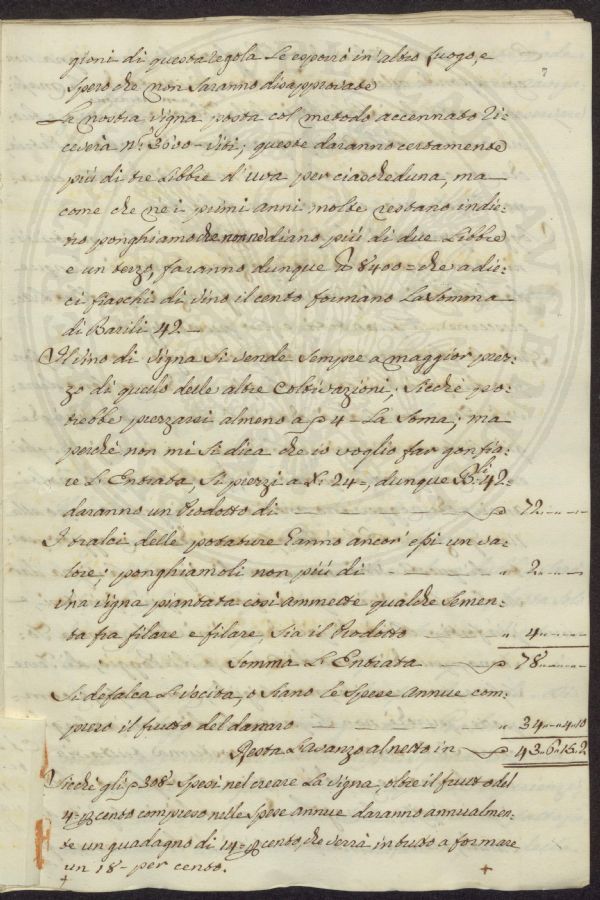 7
gioni di questa regola Le esporrò in' altro luogo, e
spero che non saranno disapprovate
La nostra vigna posta col metodo accennato ri=
ceverà N.º 3600- Viti; queste daranno certamente
più di tre Libbre d'uva per ciascheduna, ma
come che nei primi anni molte restano indie=
tro ponghiamo che non ne diano più di due Libbre
e un terzo, faranno dunque 8400= che a die=
ci fiaschi di vino il cento formano La Somma
di Barili 42-
Il vino di vigna si vende sempre a maggior prez=
zo di quello delle altre Coltivazioni; sicchè po=
trebbe prezzarsi almeno a 4- La Soma; ma
perchè non mi si dica che io voglio far gonfia=
re L'Entrata, si prezzi a 24=, dunque B.li 42-
daranno un Prodotto di 72
I tralci delle potature hanno ancor' essi un va=
lore; ponghiamoli non più di 2
Una vigna piantata così ammette qualche Semen=
ta fra filare e filare, sia il Prodotto 4
Somma L'Entrata 78
Si defalca L'Vscita, o siano le Spese Annue com=
preso il frutto del danaro 34 4 10
Resta L'avanzo al netto in 43 6 15 2
Sicchè gli 308- Spesi nel creare La vigna, oltre il frutto del
4= cento compreso nelle Spese annue daranno annualmen=
te un guadagno di 14= cento, che verrà in tutto a formare
un 18- per cento.